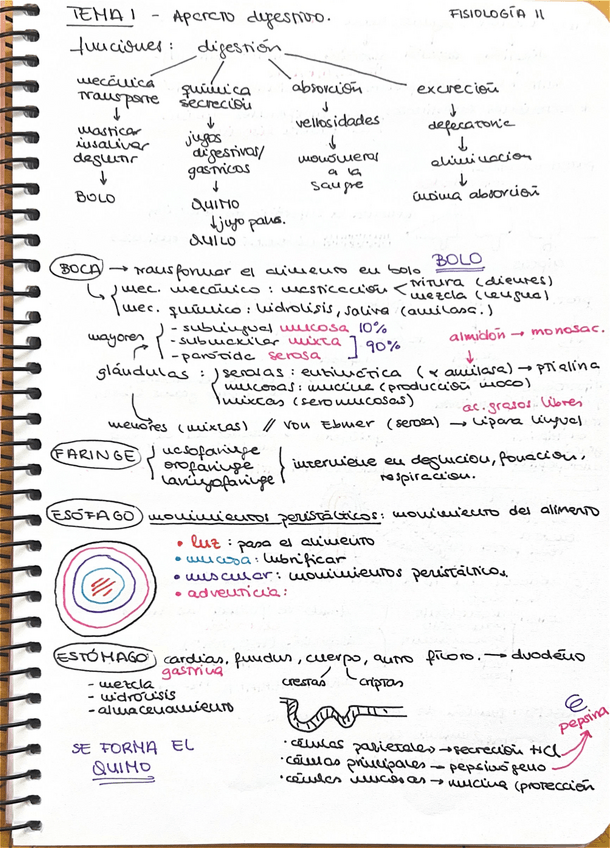 TEMA 1 - Aparato digestivo. FISIOLOGÍA II
funciones: digestión
mecánica química absorción excreción
transporte secreción
↓ ↓ ↓ ↓
masticar jugos vellosidades defecatoria
insalivar digestivos/ ↓ ↓
deglutir gástricos monómeros eliminación
↓ ↓ a la ↓
BOLO QUIMO sangre absorción
↓ jugo panc.
QUILO
BOCA → transformar el alimento en bolo BOLO
mec. mecánico: masticación < tritura (dientes)
mezcla (lengua)
mec. químico: hidrolisis, saliva (amilasa.)
mayores - sublingual mucosa 10%
- submaxilar mixta ] 90% almidón → monosac.
- parótida serosa
glándulas: serosas: enzimática (α amilasa) → ptialina
mucosas: mucina (producción moco)
mixtas (seromucosas) ac. grasos libres
menores (mixtas) // Von Ebner (serosa) → lipasa lingual
FARINGE nasofaringe
orofaringe interviene en deglución, fonación,
laringofaringe respiración.
ESÓFAGO movimientos peristálticos: movimiento del alimento
• luz: pasa el alimento
• mucosa: lubrificar
• muscular: movimientos peristálticos
• adventicia:
ESTÓMAGO cardias, fundus, cuerpo, antro píloro. → duodeno
gástrica
- mezcla crestas criptas
- hidrólisis
- almacenamiento
SE FORMA EL
QUIMO
pepsina
• células parietales → secreción HCl
• células principales → pepsinógeno
• células mucosas → mucina (protección